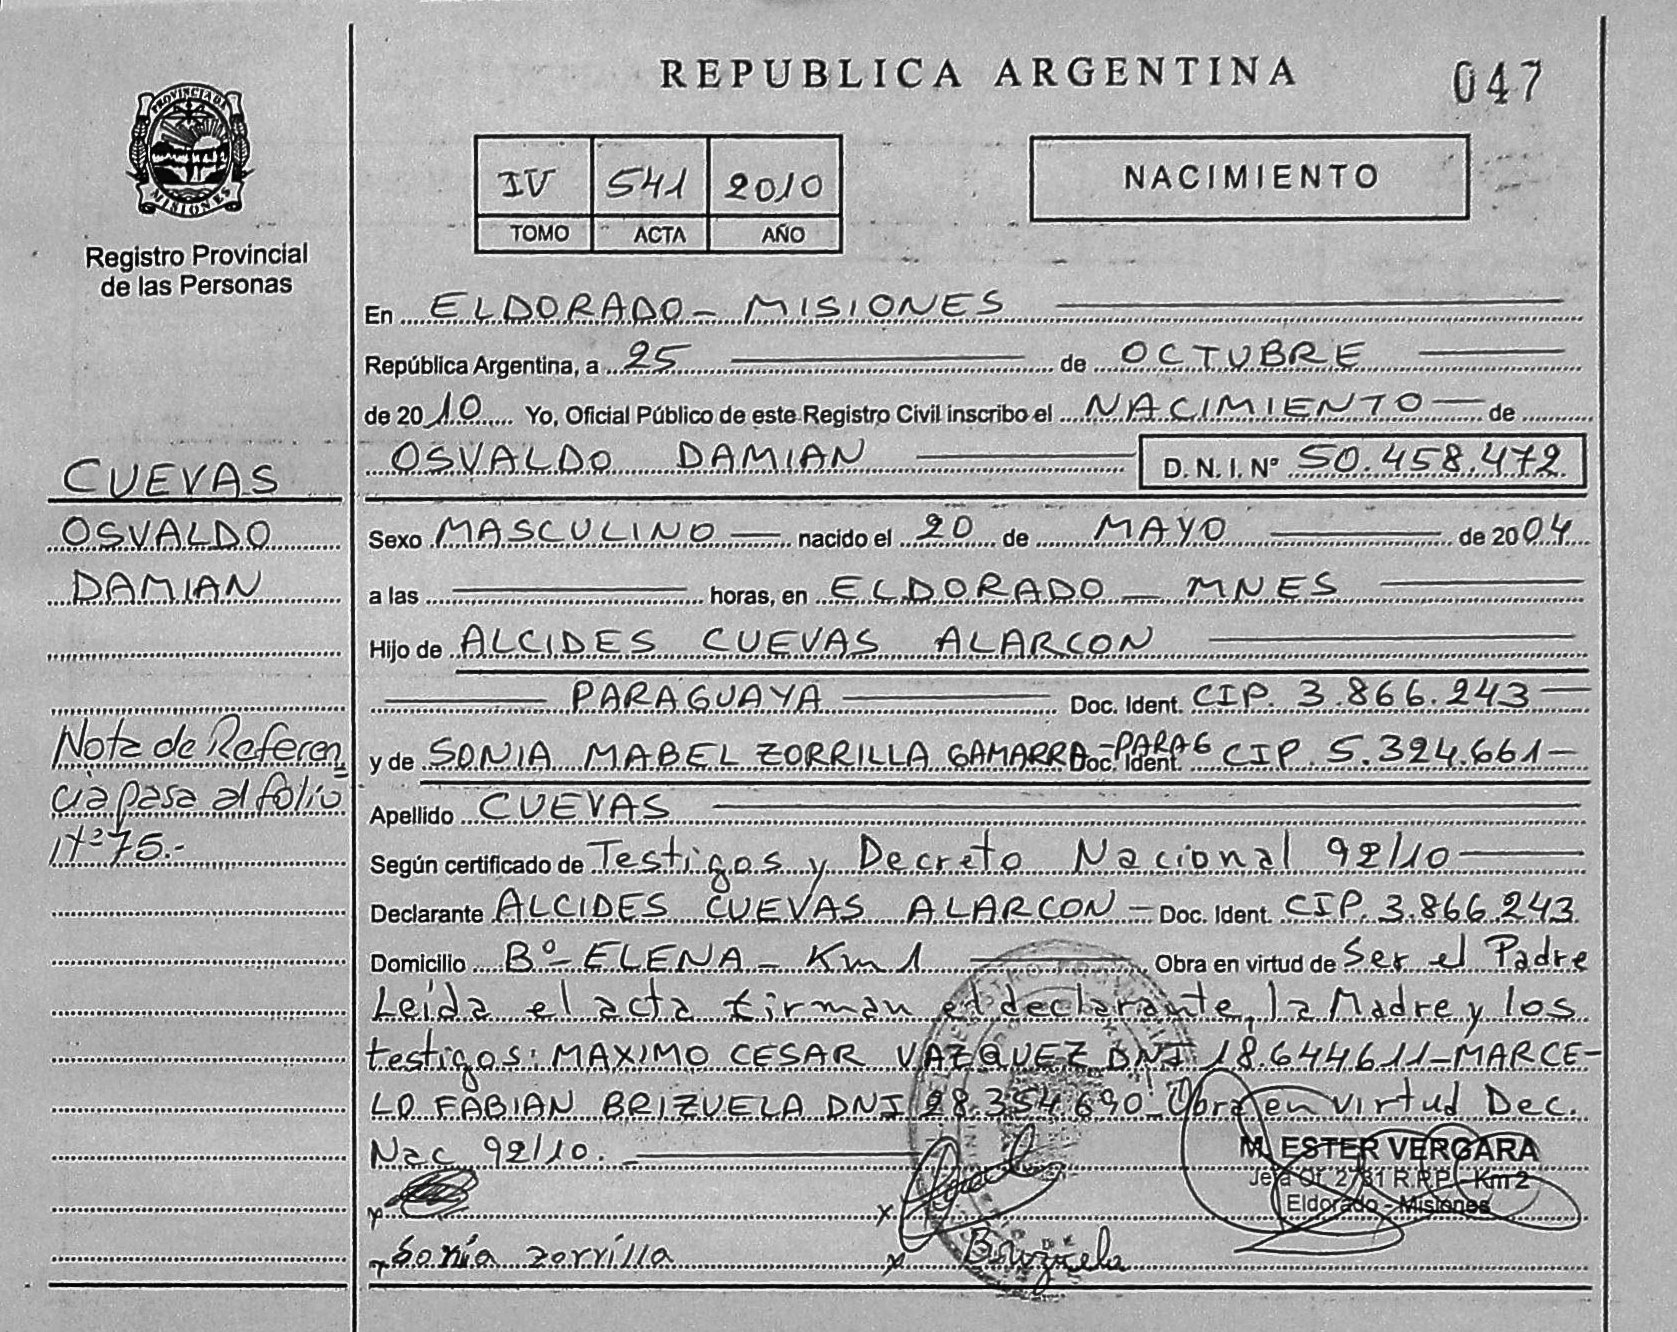 REPUBLICA ARGENTINA
047
PROVINCIA DE
MISIONES
Registro Provincial
de las Personas
IV 541 2010
TOMO ACTA AÑO
NACIMIENTO
En ELDORADO - MISIONES
República Argentina, a 25 de OCTUBRE
de 2010 Yo, Oficial Público de este Registro Civil inscribo el NACIMIENTO de
OSVALDO DAMIAN D.N.I. Nº 50.458.472
CUEVAS
OSVALDO
DAMIAN
Sexo MASCULINO nacido el 20 de MAYO de 2004
a las horas, en ELDORADO - MNES
Hijo de ALCIDES CUEVAS ALARCON
PARAGUAYA Doc. Ident. CIP. 3.866.243
y de SONIA MABEL ZORRILLA GAMARRA - PARAG Doc. Ident. CIP. 5.324.661
Apellido CUEVAS
Según certificado de Testigos y Decreto Nacional 92/10
Declarante ALCIDES CUEVAS ALARCON - Doc. Ident. CIP. 3.866.243
Domicilio Bº ELENA - Km 1 Obra en virtud de Ser el Padre
Leída el acta firman el declarante, la Madre y los
testigos: MAXIMO CESAR VAZQUEZ DNI 18.644611 - MARCE-
LO FABIAN BRIZUELA DNI 28.354.690 Obra en virtud Dec.
Nac 92/10.
Nota de Referen
cia pasa al folio
Nº 75.-
M. ESTER VERGARA
Jefa Of. 2781 R.P.P. - Km 2
Eldorado - Misiones
x
x
x Sonia zorrilla
x Brizuela